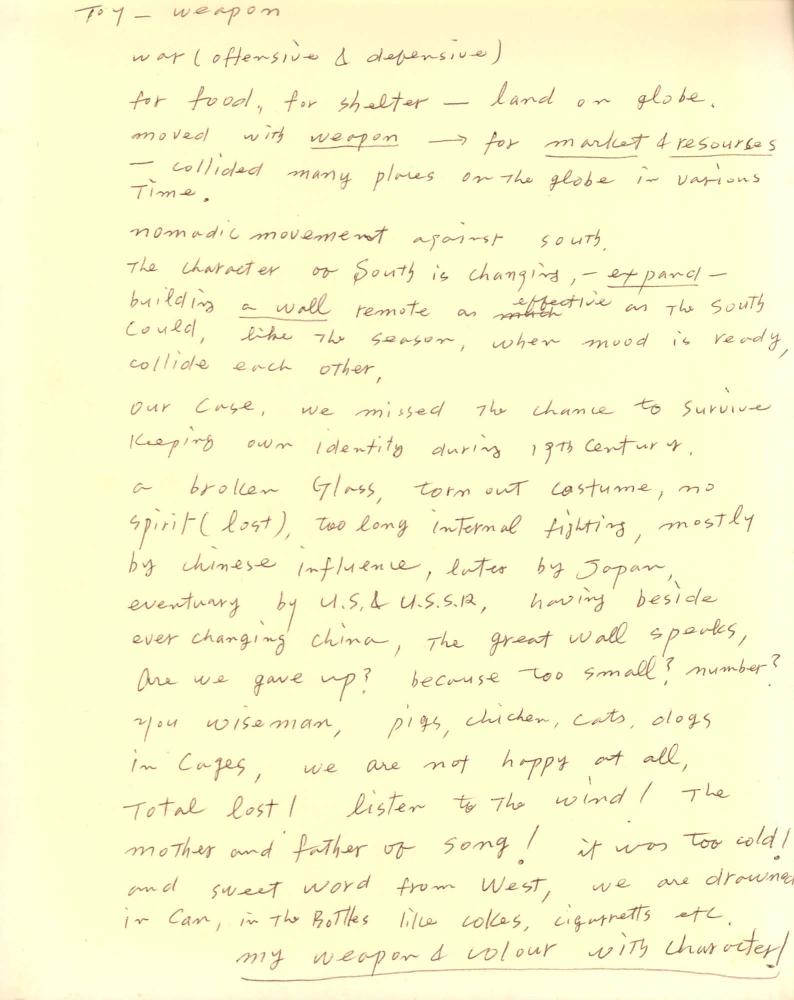 Toy - weapon
war (offensive & defensive)
for food, for shelter — land on globe.
moved with weapon → for market & resourses
— collided many places on the globe in various
Time.
nomadic movement against south.
The character of South is changing, - expand -
building a wall remote as much effective as The South
Could, like The season, when mood is ready,
collide each other,
our Case, we missed The chance to Survive
Keeping own identity during 19th Century.
a broken Glass, torn out costume, no
spirit (lost), too long internal fighting, mostly
by chinese influence, later by Japan,
eventuary by U.S, & U.S.S.R, having beside
ever changing china, The great wall speaks,
Are we gave up? because too small? number?
you wiseman, pigs, chicken, cats, dogs
in Cages, we are not happy at all,
Total lost! listen to The wind! The
mother and father of song! it was Too cold!
and sweet word from West, we are drowned
in Can, in The Bottles like cokes, cigarretts etc.
my weapon & colour with character!